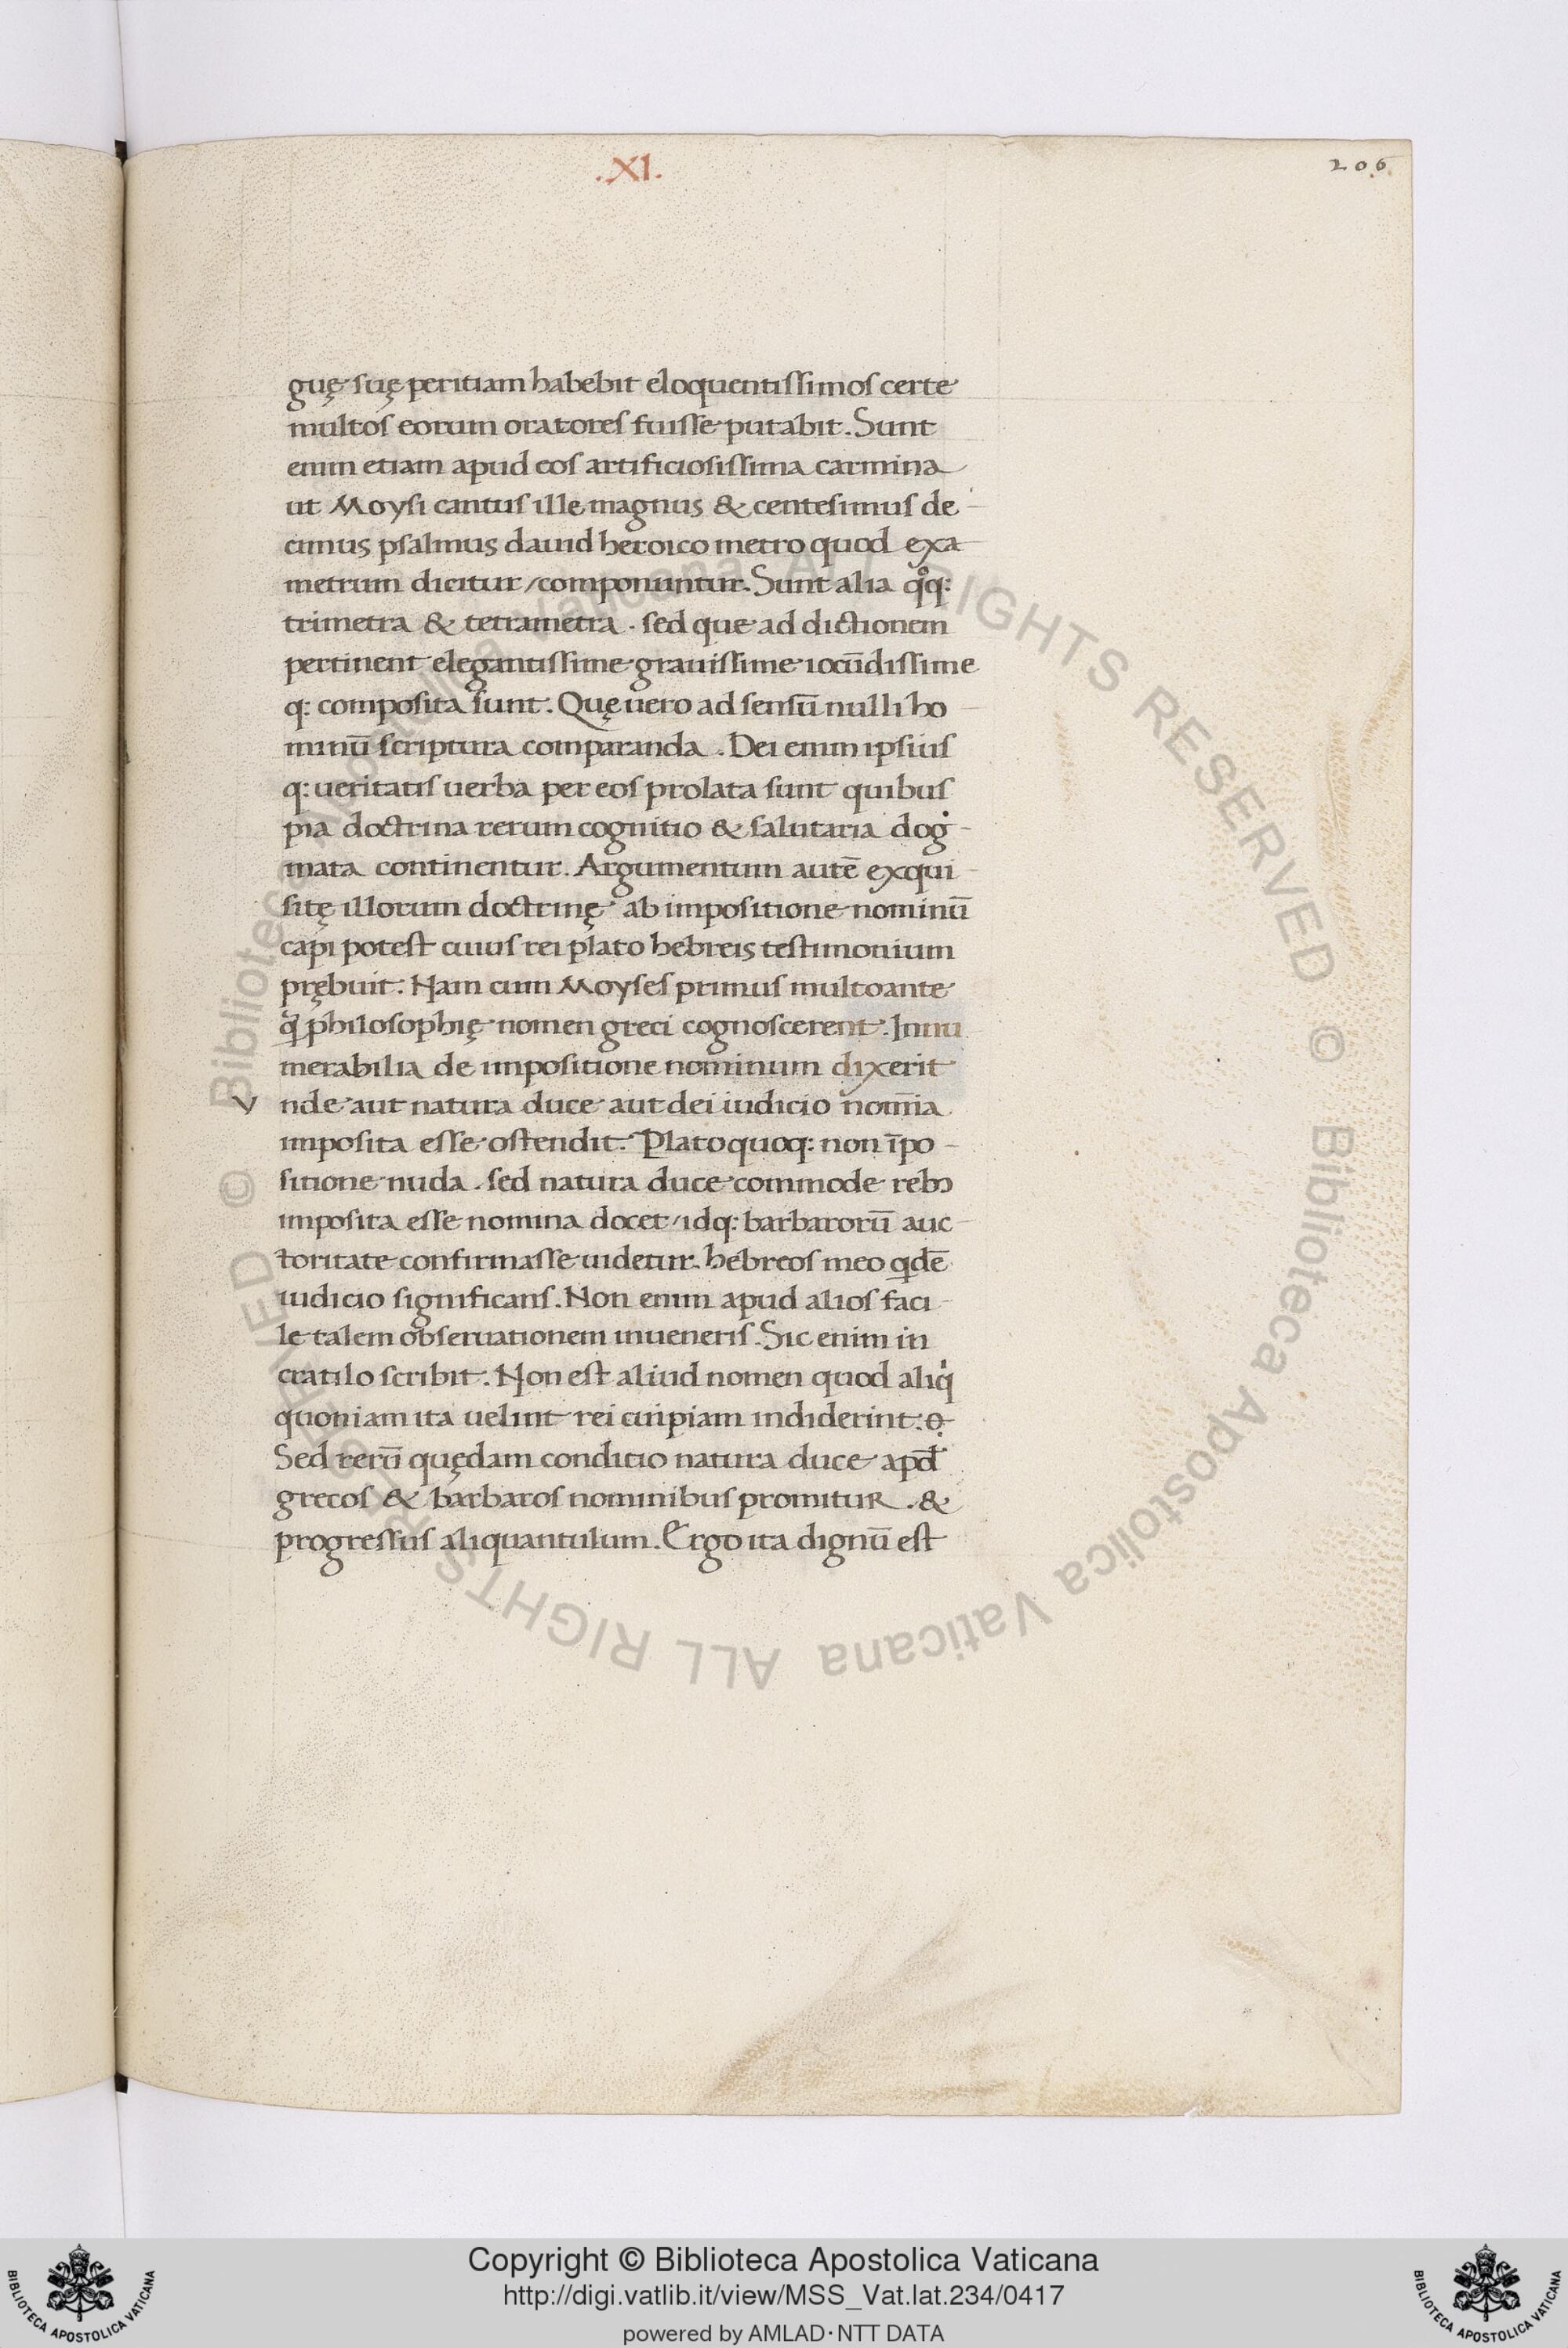 .XI.
206
guę suę peritiam habebit eloquentissimos certe
multos eorum oratores fuisse putabit. Sunt
enim etiam apud eos artificiosissima carmina
ut Moysi cantus ille magnus & centesimus de-
cimus psalmus dauid heroico metro quod exa
metrum dicitur/componuntur. Sunt alia qͦq:
trimetra & tetrametra. sed que ad dictionem
pertinent elegantissime grauissime iocūdissime
q: composita sunt. Quę uero ad sensū nulli ho-
minū scriptura comparanda. Dei enim ipsius
q: ueritatis uerba per eos prolata sunt quibus
pia doctrina rerum cognitio & salutaria dog-
mata continentur. Argumentum autē exqui-
sitę illorum doctrinę ab impositione nominū
capi potest cuius rei plato hebreis testimonium
prębuit. Nam cum Moyses primus multo ante
q̄ philosophię nomen greci cognoscerent. Innu
merabilia de impositione nominum dixerit
Vnde aut natura duce aut dei iudicio nom̄ia
imposita esse ostendit. Plato quoq: non īpo-
sitione nuda. sed natura duce commode rebꝫ
imposita esse nomina docet/idq: barbarorū auc-
toritate confirmasse uidetur. hebreos meo qdē
iudicio significans. Non enim apud alios faci-
le talem obseruationem inueneris. Sic enim in
cratilo scribit. Non est aliud nomen quod aliqͥ
quoniam ita uelint rei cuipiam indiderint:
Sed rerū quędam conditio natura duce apd̄
grecos & barbaros nominibus promitur. &
progressus aliquantulum. Ergo ita dignū est
© Biblioteca Apostolica Vaticana ALL RIGHTS RESERVED © Biblioteca Apostolica Vaticana ALL RIGHTS RESERVED
BIBLIOTECA APOSTOLICA VATICANA
Copyright © Biblioteca Apostolica Vaticana
http://digi.vatlib.it/view/MSS_Vat.lat.234/0417
powered by AMLAD·NTT DATA
BIBLIOTECA APOSTOLICA VATICANA